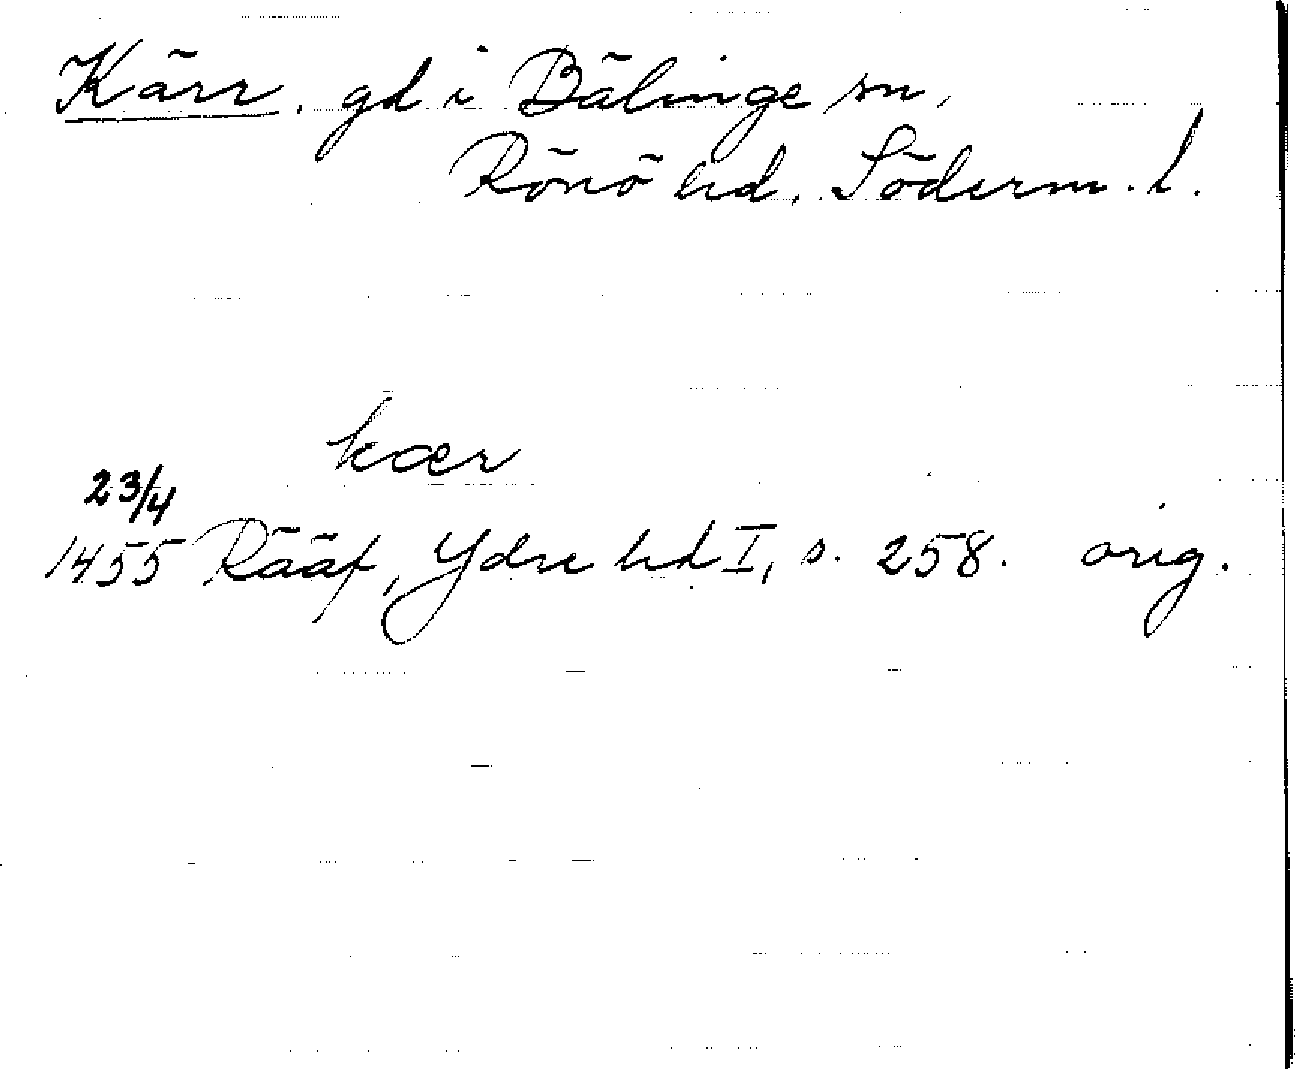 Kärr, gd i Bälinge sn,
Rönö hd, Söderm. l.
kær
23/4
1455 Rääf, Ydre hd I, s. 258. orig.